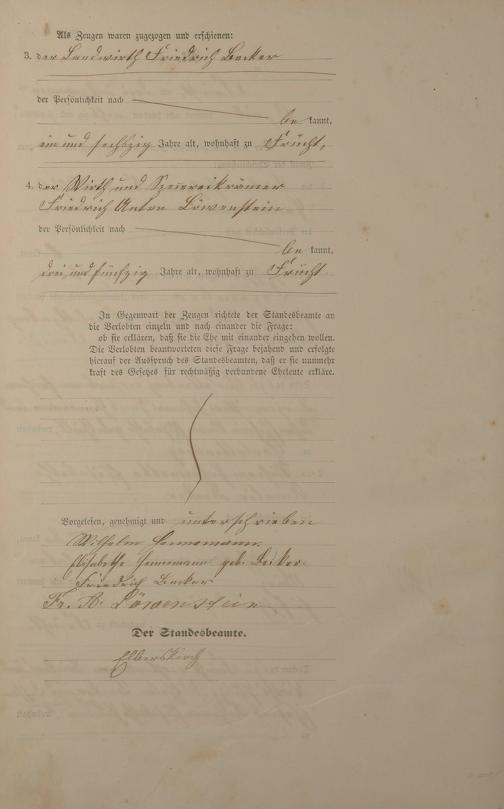 Als Zeugen waren zugezogen und erschienen:
3. der Landwirth Friedrich Becker
der Persönlichkeit nach
be kannt,
ein und sechszig Jahre alt, wohnhaft zu Frücht,
4. der Wirth und Spezereikrämer
Friedrich Anton Löwenstein
der Persönlichkeit nach
be kannt,
drei und fünfzig Jahre alt, wohnhaft zu Frücht
In Gegenwart der Zeugen richtete der Standesbeamte an
die Verlobten einzeln und nach einander die Frage:
ob sie erklären, daß sie die Ehe mit einander eingehen wollen.
Die Verlobten beantworteten diese Frage bejahend und erfolgte
hierauf der Ausspruch des Standesbeamten, daß er sie nunmehr
kraft des Gesetzes für rechtmäßig verbundene Eheleute erkläre.
Vorgelesen, genehmigt und unterschrieben
Wilhelm Hennemann
Elisabethe Hennemann geb. Becker
Friedrich Becker
Fr. A. Löwenstein
Der Standesbeamte.